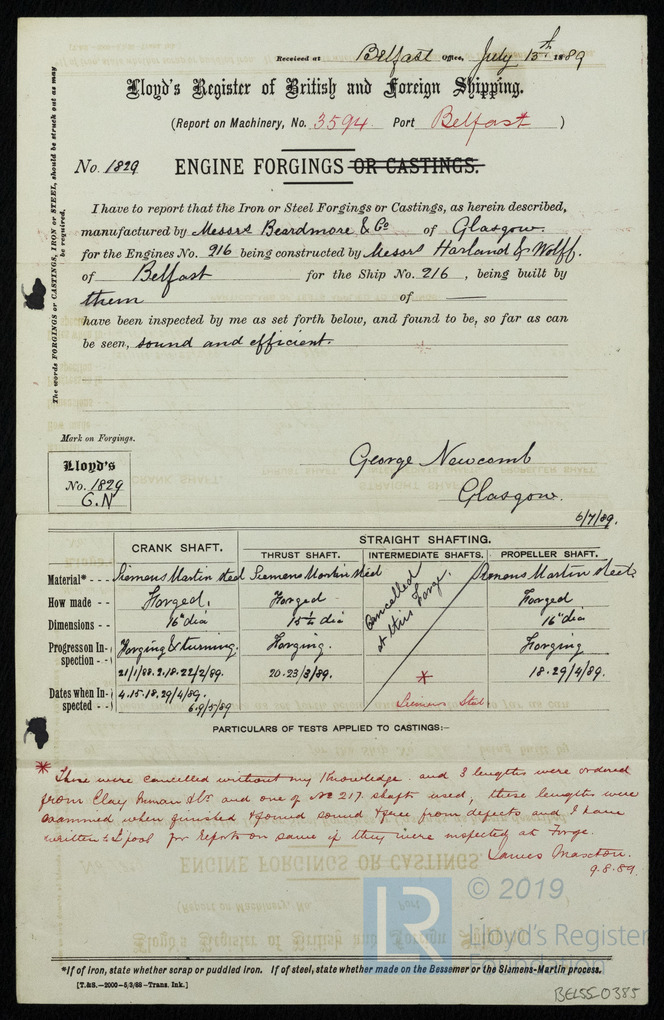 Received at Belfast Office, July 13th 1889
Lloyd's Register of British and Foreign Shipping.
(Report on Machinery, No. 3594 Port Belfast)
No. 1829 ENGINE FORGINGS OR CASTINGS.
The words FORGINGS or CASTINGS, IRON or STEEL, should be struck out as may be required.
I have to report that the Iron or Steel Forgings or Castings, as herein described,
manufactured by Messrs Beardmore & Co of Glasgow.
for the Engines No. 216 being constructed by Messrs Harland & Wolff.
of Belfast for the Ship No. 216, being built by
them of —
have been inspected by me as set forth below, and found to be, so far as can
be seen, sound and efficient.
Mark on Forgings.
Lloyd's
No. 1829
G.N
George Newcomb
Glasgow.
6/7/89.
STRAIGHT SHAFTING.
CRANK SHAFT. THRUST SHAFT. INTERMEDIATE SHAFTS. PROPELLER SHAFT.
Material* - - - Siemens Martin steel Siemens Martin steel Cancelled at this Forge. Siemens Martin steel
How made - - Forged. Forged Forged
Dimensions - - 16" dia 15½ dia 16" dia
Progress on Inspection - - Forging & turning. Forging. Forging
Dates when Inspected - - 21/1/88. 2.18.22/2/89. 20.23/3/89. * 18.29/4/89.
4.15.18.29/4/89. Siemens Steel
6.9/5/89
PARTICULARS OF TESTS APPLIED TO CASTINGS:–
* These were cancelled without my knowledge and 3 lengths were ordered
from Clay Inman & Co and one of No 217 shafts used, these lengths were
examined when finished & found sound & free from defects and I have
written to L'pool for Reports on same if they were inspected at Forge.
James
9.8.89.
© 2019
LR Lloyd's Register
Foundation
*If of iron, state whether scrap or puddled iron. If of steel, state whether made on the Bessemer or the Siemens-Martin process.
[T.&S.—2000—5/3/88—Trans. Ink.]
BEL55-0385